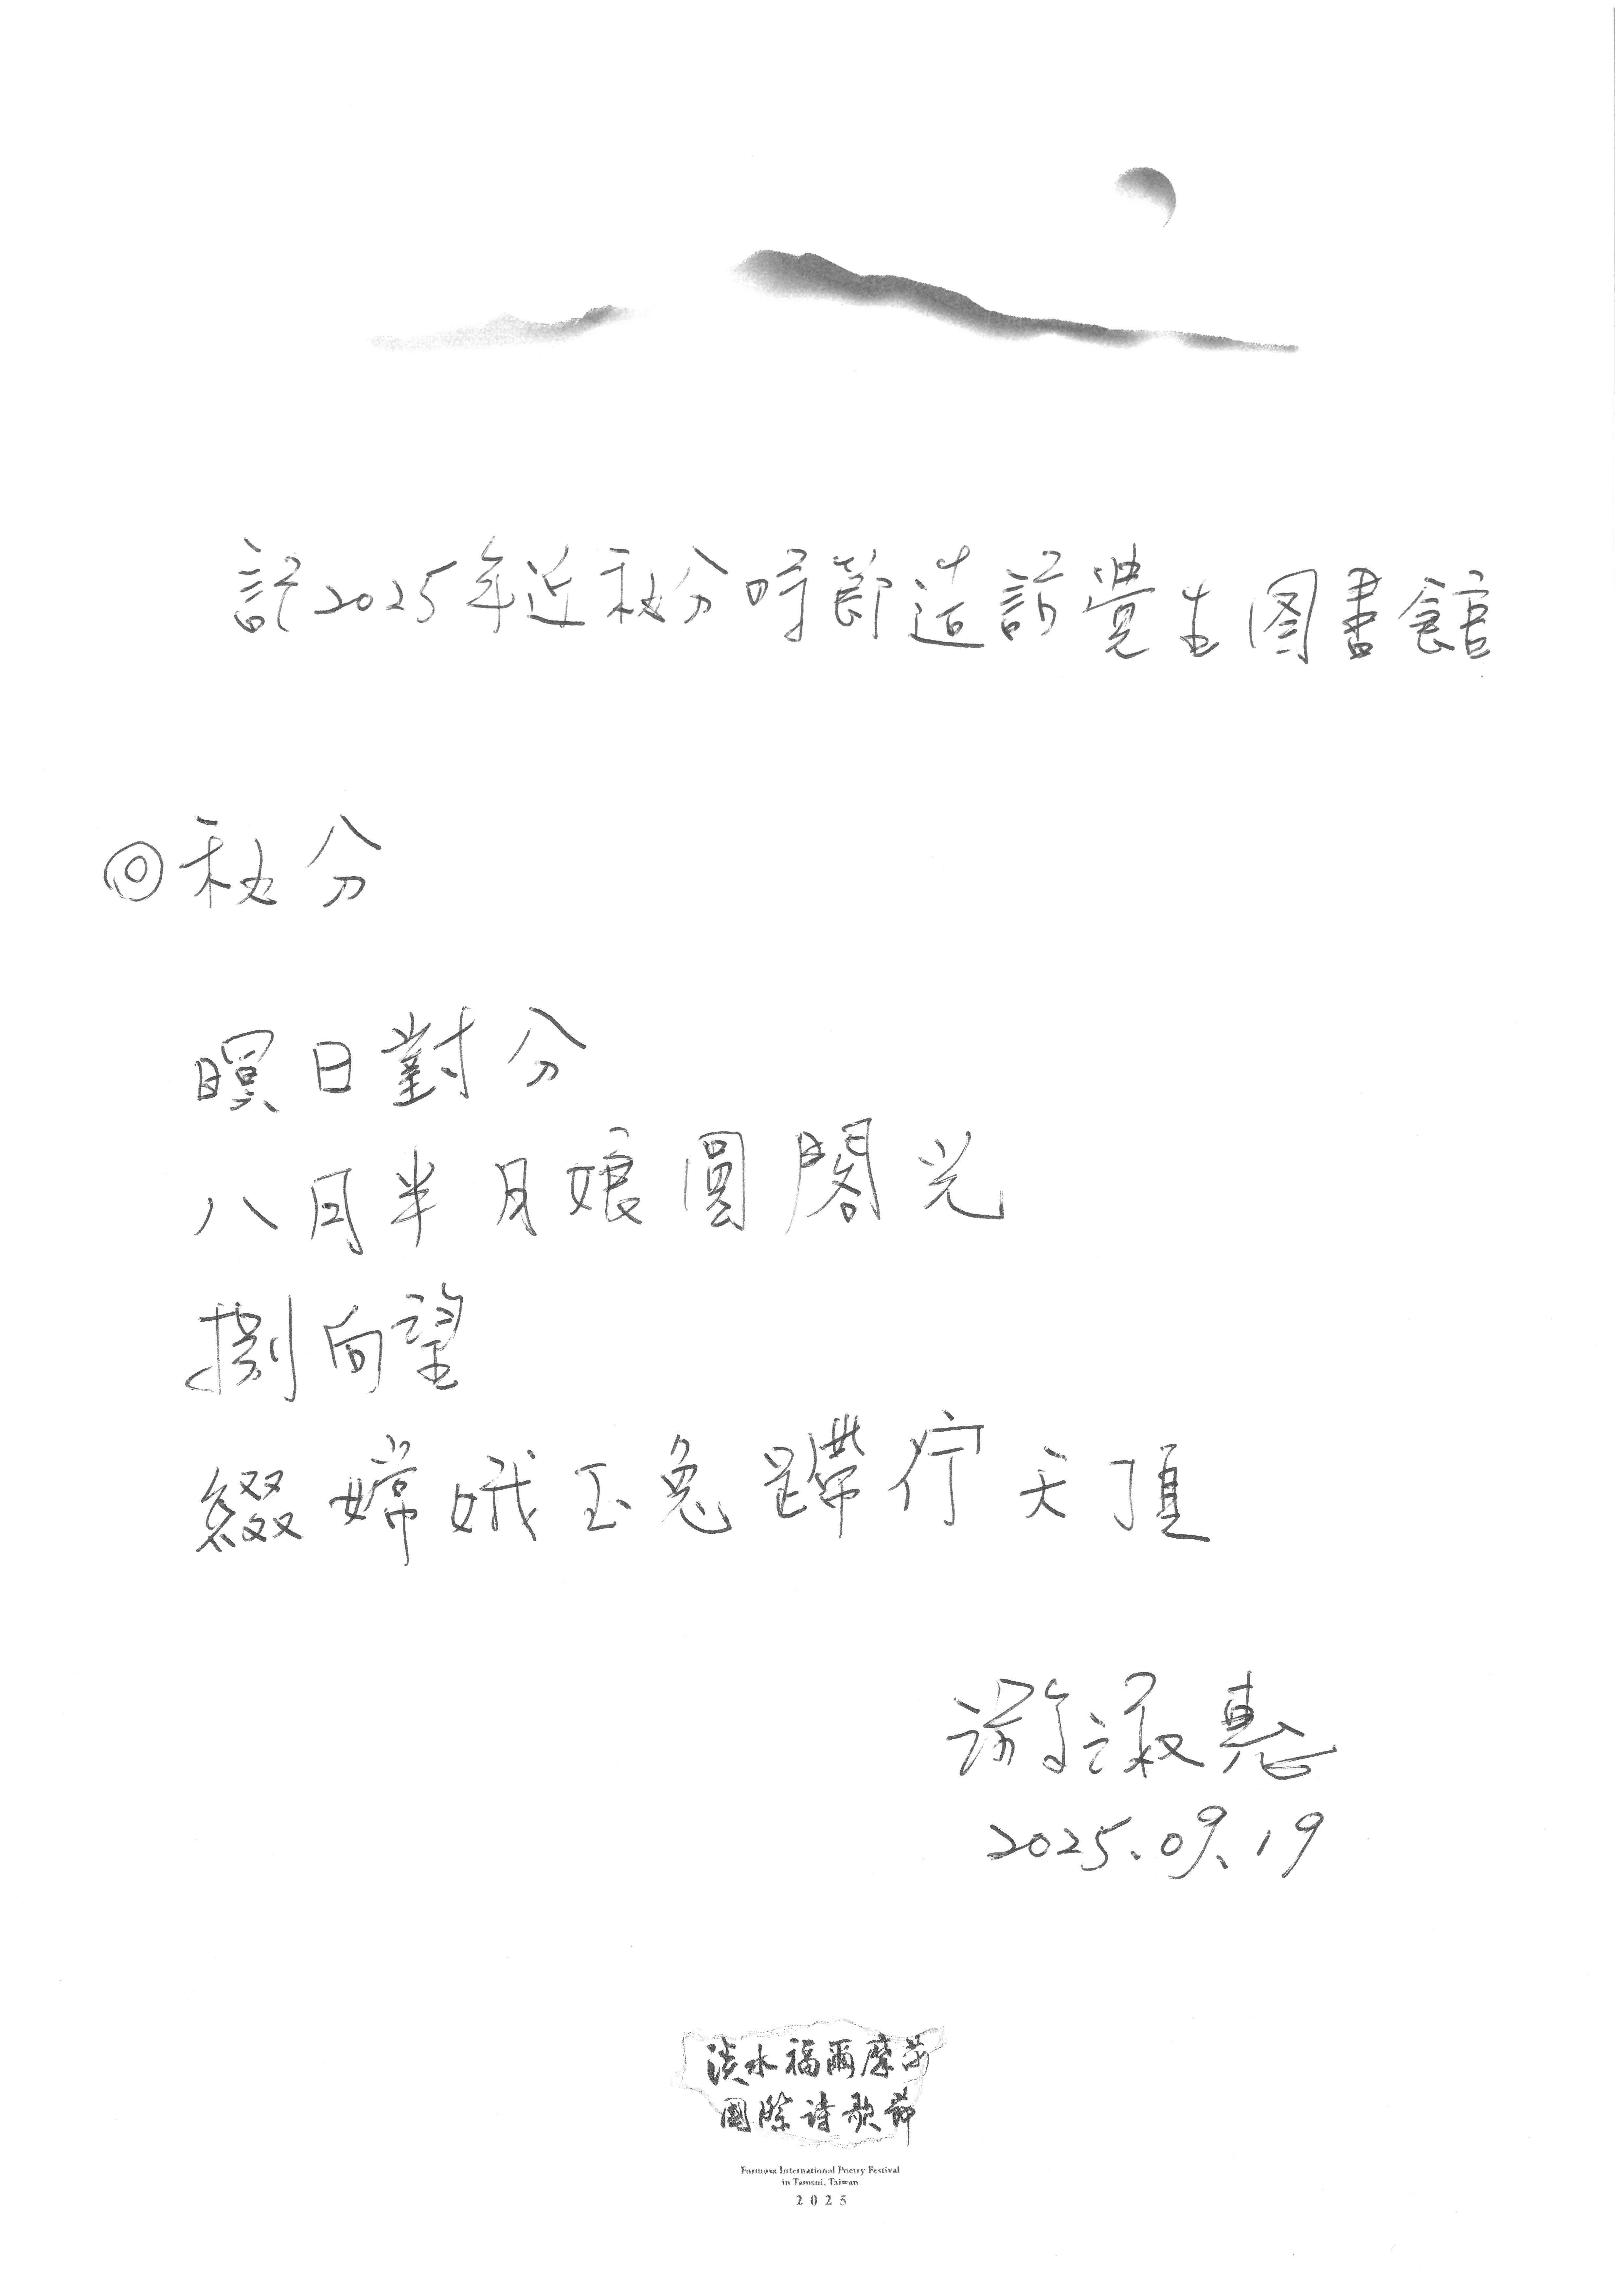 記2025年近秋分時節造訪覺生图書館
◎秋分
暝日對分
八月半月娘圓閣光
捌向望
綴嫦娥玉兔蹛佇天頂
游淑惠
2025.09.19
淡水福爾摩莎
國際詩歌節
Formosa International Poetry Festival
in Tamsui, Taiwan
2025